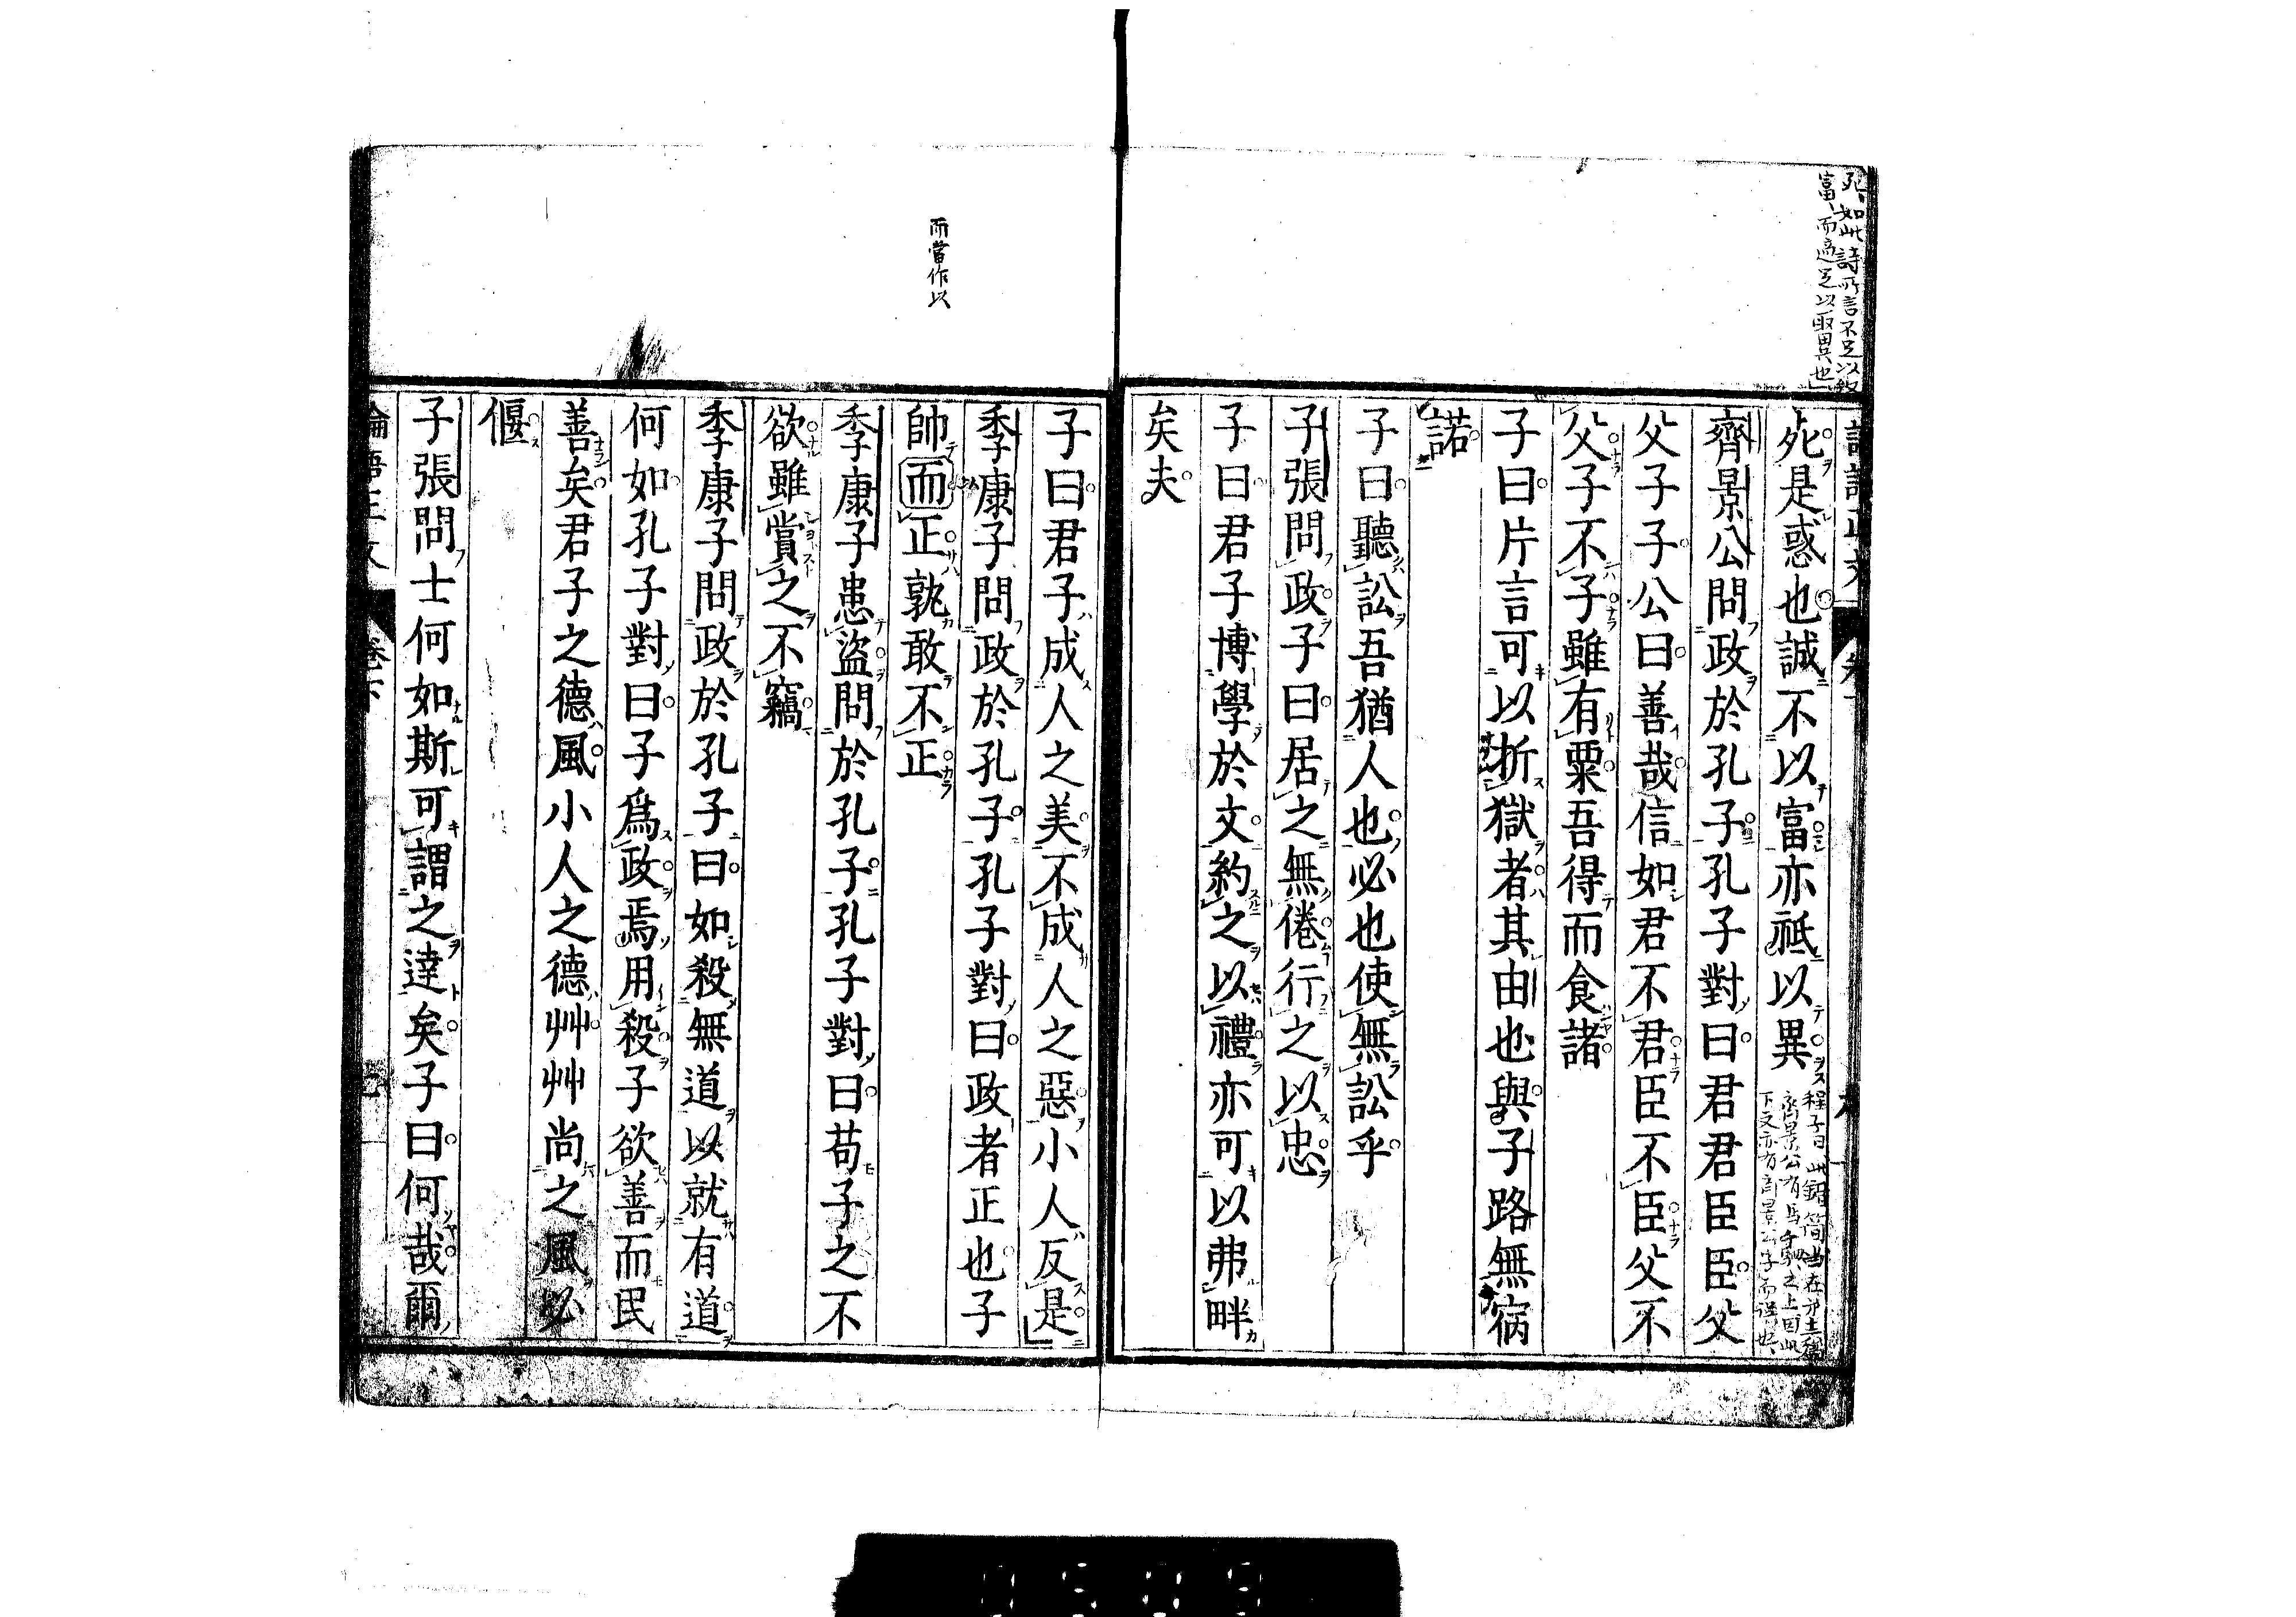 死如此詩所言不足以致
富而適足以取異也
死是惑也誠不以富亦祇以異
程子曰此錯簡當在第十六篇
齊景公有馬千駟之上因此
下文亦有齊景公字而誤也
齊景公問政於孔子孔子對曰君君臣臣父
父子子公曰善哉信如君不君臣不臣父不
父子不子雖有粟吾得而食諸
子曰片言可以折獄者其由也與子路無宿
諾
子曰聽訟吾猶人也必也使無訟乎
子張問政子曰居之無倦行之以忠
子曰君子博學於文約之以禮亦可以弗畔
矣夫
子曰君子成人之美不成人之惡小人反是
季康子問政於孔子孔子對曰政者正也子
帥而正孰敢不正
而當作以
季康子患盜問於孔子孔子對曰苟子之不
欲雖賞之不竊
季康子問政於孔子曰如殺無道以就有道
何如孔子對曰子爲政焉用殺子欲善而民
善矣君子之德風小人之德艸艸尚之風必
偃
子張問士何如斯可謂之達矣子曰何哉爾
論語正文 卷下